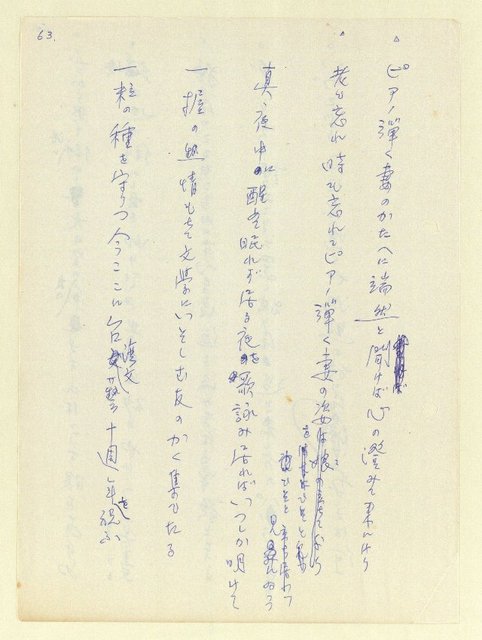 63.
ピアノ弾く妻のかたへに端然と聞けば心の澄みて来にけり
老も忘れ時も忘れてピアノ弾く妻の姿は
真夜中に醒き眠れず居る夜を歌詠み居ればいつしか明けて
一握の熱情もちて文学にいそしむ友のかく集ひたる
一粒の種を守りつ今ここに台湾文藝十週年を祝ふ